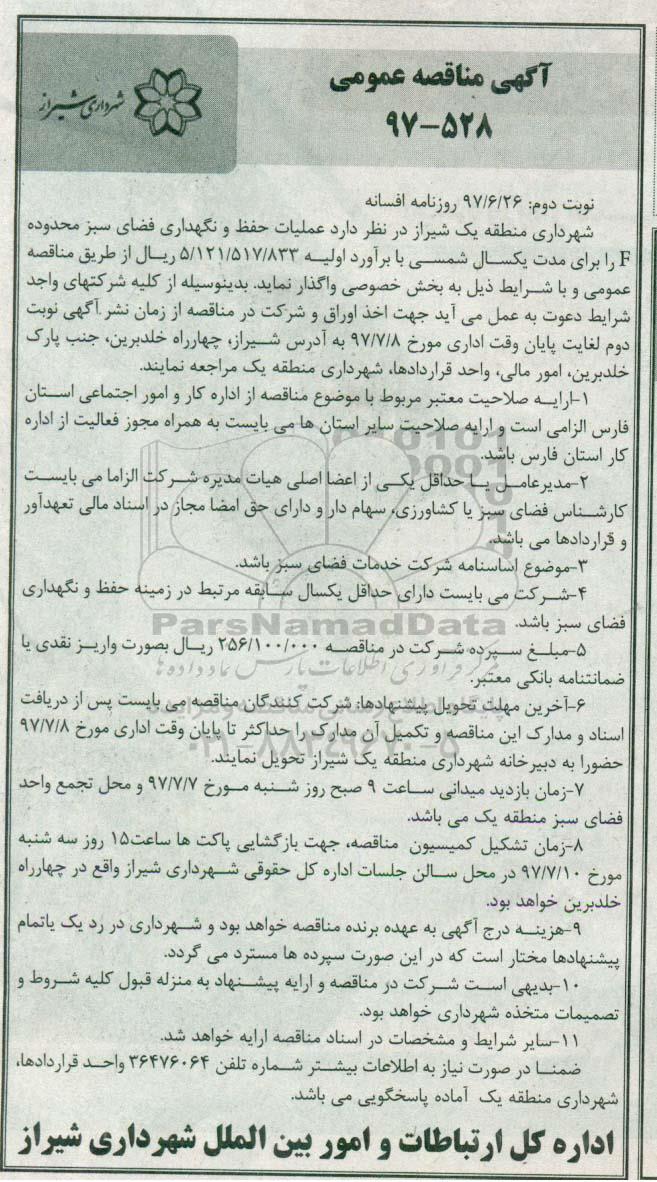 آگهی مناقصه عمومی
۹۷-۵۲۸
شهرداری شیراز
نوبت دوم: ۹۷/۶/۲۶ روزنامه افسانه
شهرداری منطقه یک شیراز در نظر دارد عملیات حفظ و نگهداری فضای سبز محدوده
F را برای مدت یکسال شمسی با برآورد اولیه ۵/۱۲۱/۵۱۷/۸۳۳ ریال از طریق مناقصه
عمومی و با شرایط ذیل به بخش خصوصی واگذار نماید. بدینوسیله از کلیه شرکتهای واجد
شرایط دعوت به عمل می آید جهت اخذ اوراق و شرکت در مناقصه از زمان نشر آگهی نوبت
دوم لغایت پایان وقت اداری مورخ ۹۷/۷/۸ به آدرس شیراز، چهارراه خلدبرین، جنب پارک
خلدبرین، امور مالی، واحد قراردادها، شهرداری منطقه یک مراجعه نمایند.
۱-ارایه صلاحیت معتبر مربوط با موضوع مناقصه از اداره کار و امور اجتماعی استان
فارس الزامی است و ارایه صلاحیت سایر استان ها می بایست به همراه مجوز فعالیت از اداره
کار استان فارس باشد.
۲-مدیرعامل یا حداقل یکی از اعضا اصلی هیات مدیره شرکت الزاما می بایست
کارشناس فضای سبز یا کشاورزی، سهام دار و دارای حق امضا مجاز در اسناد مالی تعهدآور
و قراردادها می باشد.
۳-موضوع اساسنامه شرکت خدمات فضای سبز باشد.
۴-شرکت می بایست دارای حداقل یکسال سابقه مرتبط در زمینه حفظ و نگهداری
فضای سبز باشد.
ParsNamadData
۵-مبلغ سپرده شرکت در مناقصه ۲۵۶/۱۰۰/۰۰۰ ریال بصورت واریز نقدی یا
ضمانتنامه بانکی معتبر.
۶-آخرین مهلت تحویل پیشنهادها: شرکت کنندگان مناقصه می بایست پس از دریافت
اسناد و مدارک این مناقصه و تکمیل آن مدارک را حداکثر تا پایان وقت اداری مورخ ۹۷/۷/۸
حضورا به دبیرخانه شهرداری منطقه یک شیراز تحویل نمایند.
۰۲۱-۸۸۳۴۹۶۷۰-۵
۷-زمان بازدید میدانی ساعت ۹ صبح روز شنبه مورخ ۹۷/۷/۷ و محل تجمع واحد
فضای سبز منطقه یک می باشد.
۸-زمان تشکیل کمیسیون مناقصه، جهت بازگشایی پاکت ها ساعت۱۵ روز سه شنبه
مورخ ۹۷/۷/۱۰ در محل سالن جلسات اداره کل حقوقی شهرداری شیراز واقع در چهارراه
خلدبرین خواهد بود.
۹-هزینه درج آگهی به عهده برنده مناقصه خواهد بود و شهرداری در رد یک یاتمام
پیشنهادها مختار است که در این صورت سپرده ها مسترد می گردد.
۱۰-بدیهی است شرکت در مناقصه و ارایه پیشنهاد به منزله قبول کلیه شروط و
تصمیمات متخذه شهرداری خواهد بود.
۱۱-سایر شرایط و مشخصات در اسناد مناقصه ارایه خواهد شد.
ضمنا در صورت نیاز به اطلاعات بیشتر شماره تلفن ۳۶۴۷۶۰۶۴ واحد قراردادها،
شهرداری منطقه یک آماده پاسخگویی می باشد.
اداره کل ارتباطات و امور بین الملل شهرداری شیراز